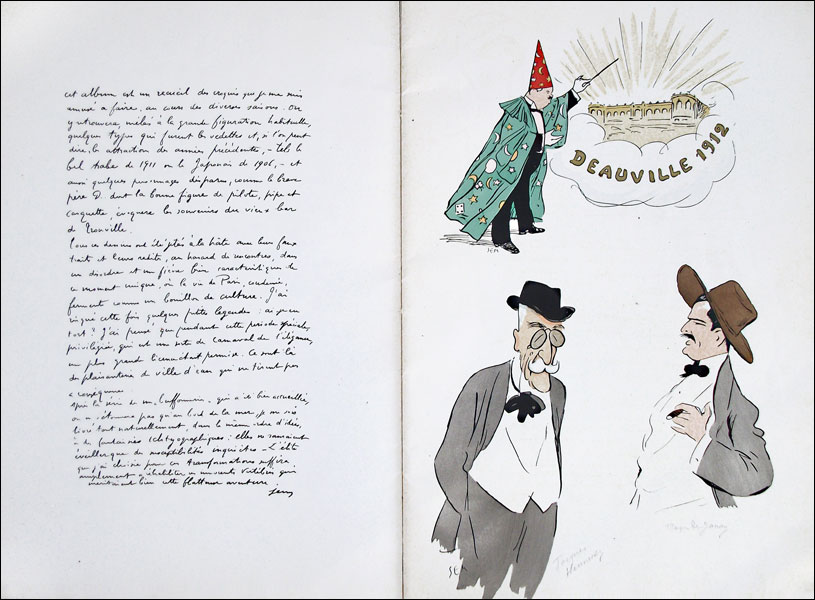 cet album est un recueil des croquis que je me suis
amusé a faire, au cours des diverses saisons. On
y retrouvera, mêlés à la grande figuration habituelle,
quelques types qui furent les vedettes et, si l'on peut
dire, les attractions des années précédentes, - tel le
bel Arabe de 1911 ou le Japonais de 1906, - et
aussi quelques personnages disparus, comme le brave
père D. dont la bonne figure de pilote, pipe et
casquette, évoquera les souvenirs du vieux bar
de Trouville.
Tous ces dessins ont été jetés à la hâte avec leur faux
trait et leurs redites, au hasard des rencontres, dans
un désordre et une fièvre bien caractéristique de
ce moment unique, où la vie de Paris, condensée,
fermente comme un bouillon de culture. J'ai
risqué cette fois quelques petites légendes : ai-je eu
tort ? J'ai pensé que pendant cette période spéciale,
privilégiée, qui est une sorte de carnaval de l'élégance,
un plus grand licence était permise. Ce sont là
des plaisanteries de ville d'eau qui ne tirent pas
a conséquence.
Après la série de m. buffonneries, qui a été bien accueillie,
on s'étonnera pas qu'au bord de la mer je me sois
livré tout naturellement, dans le même ordre d'idées,
à des fantaisies : elles ne sauraient
éveiller que de susceptibilités inquiètes - L'élite
que j'ai choisie pour ces transformations suffira
amplement a réhabiliter un
bien cette flatteuse aventure.
Sem
DEAUVILLE 1912
SEM
SEM
Jacques